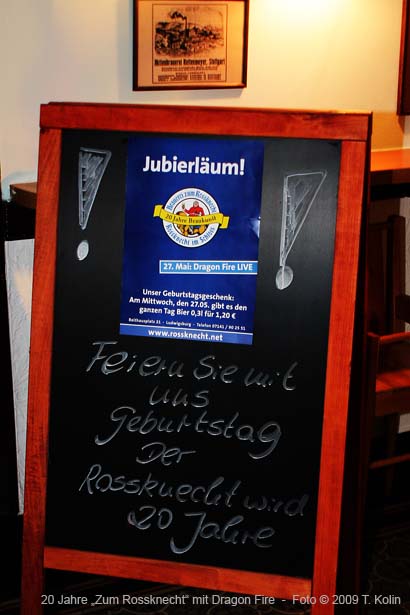 Aktienbrauerei Rettenmeyer, Stuttgart
Jubierläum!
Brauerei zum Rossknecht
20 Jahre Braukunst
Rossknecht im Schloss
27. Mai: Dragon Fire LIVE
Unser Geburtstagsgeschenk:
Am Mittwoch, den 27.05. gibt es den
ganzen Tag Bier 0,3l für 1,20 €
Reithausplatz 21 - Ludwigsburg - Telefon 07141 / 90 25 51
www.rossknecht.net
! !
Feiern Sie mit
uns
Geburtstag
Der
Rossknecht wird
20 Jahre
20 Jahre „Zum Rossknecht“ mit Dragon Fire - Foto © 2009 T. Kolin